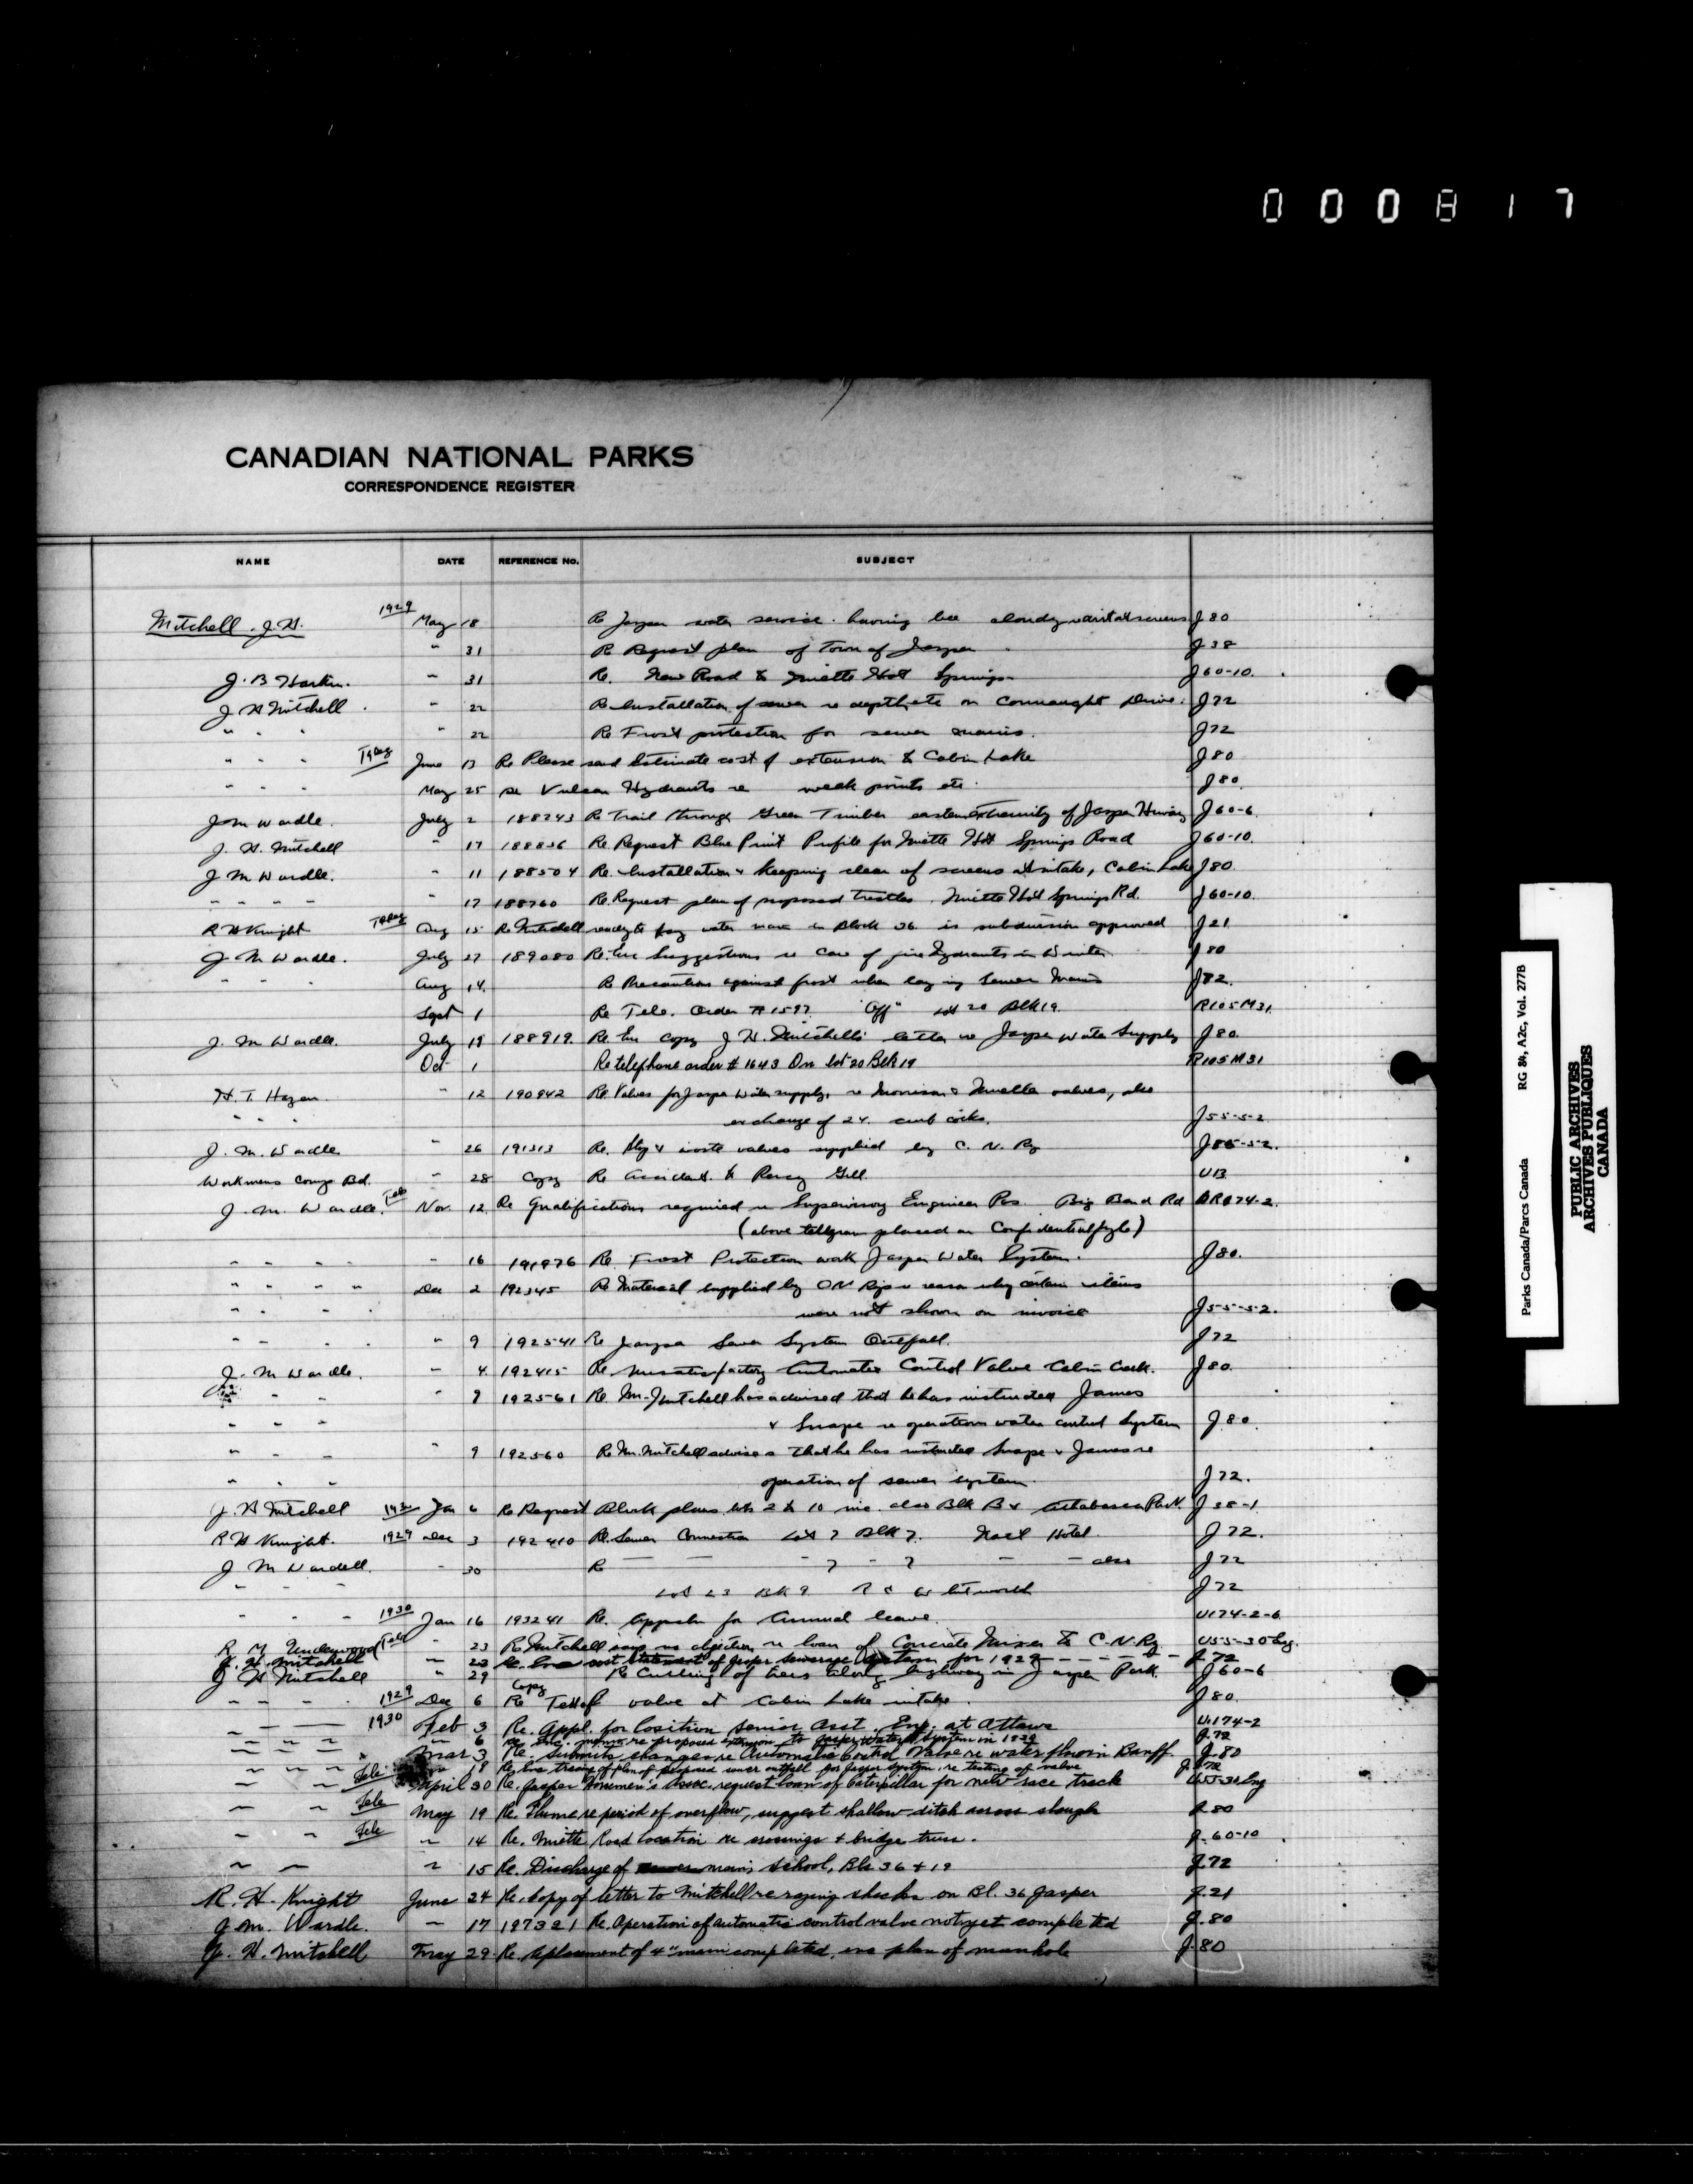 000817
CANADIAN NATIONAL PARKS
CORRESPONDENCE REGISTER
NAME DATE REFERENCE No. SUBJECT
Mitchell. J.H. 1929 May 18 Re Jasper water service. having cloudy J 80
" 31 Re Request plan of Town of Jasper J 38
J. B Harkin. " 31 Re. New Road to Miette Hot Springs J 60-10.
J H Mitchell. " 22 Re Installation of sewer re depth etc on Connaught Drive. J 72
" " " " 22 Re Frost protection for sewer mains. J 72
" " " June 13 Re Please send Estimate cost of extension to Cabin Lake J 80
" " " May 25 Re Vulcan Hydrants re weak points etc. J 80.
J M Wardle. July 2 188243 Re Trail through Green Timber eastern extremity of Jasper J 60-6.
J. H. Mitchell " 17 188836 Re Request Blue Print Profile for Miette Hot Springs Road J 60-10.
J M Wardle. " 11 188504 Re. Installation & keeping clear of screens intake, Cabin Lake J 80.
" " " " " 17 188760 Re. Request plan of proposed trestles. Miette Hot Springs Rd. J 60-10.
R H Knight Aug 15 Re Mitchell ready to water main in Block 36 is subdivision approved J 21
J M Wardle. July 27 189080 Re. Enc Suggestions re Care of fire hydrants in Winter J 80
" " " Aug 14. Re Precautions against frost when laying Sewer Mains J 82.
Sept 1 Re Tele. Order # 1597 "Off" Lot 20 Blk 19. R105 M31.
J. M Wardle. July 19 188919. Re. Enc copy J H. Mitchell's letter re Jasper Water Supply J 80.
Oct 1 Re telephone order # 1643 On Lot 20 Blk 19 R105 M31
H. T. Hazen. " 12 190942 Re. Valves for Jasper Water supply, re Morrison & Mueller valves, also
" " " exchange of 24. curb cocks. J 55-5-2
J. M. Wardle " 26 191313 Re. & waste valves supplied by C. N. Ry
Workmens Comp Bd. " 28 Copy Re accident to Percy Gill U13
J. M. Wardle. Tele Nov. 12. Re Qualifications required re Supervising Engineer Pos. Big Bend Rd
(above telegram placed on Confidential file)
" " " " " 16 191976 Re Frost Protection work Jasper Water System. J 80.
" " " " Dec 2 192345 Re Material supplied by C N Rys re reason why certain items
" " " " were not shown on invoice J 55-5-2.
" " " " " 9 192541 Re Jasper Sewer System Outfall. J 72
J. M Wardle. " 4. 192415 Re Unsatisfactory Automatic Control Valve Cabin J 80.
" " " 9 192561 Re. Mr. Mitchell has advised that he has instructed James
" " " & Snape re operation water control System J 80.
" " " " 9 192560 Re Mr. Mitchell advises that he has instructed Snape & James re
" " " operation of sewer system. J 72.
J. H Mitchell Jan 6 Re Request Block plans 2 to 10 inc. also Blk B & J 38-1
R H Knight. 1929 Dec 3 192410 Re. Sewer Connection Lot 7 Blk 7. Hotel. J 72.
J M Wardell. " 30 Re — — " 7 " 7 — — also J 72
" " " Lot 23 Blk 9 J 72
" " " 1930 Jan 16 193241 Re. for Annual leave. U174-2-6
R. M. Underwood Tele " 23 Re Mitchell says no objection re loan of Concrete Mixer to C.N.Ry.
J. H. Mitchell " 23 cost statement of Jasper sewerage System for 1929 J. 72
J H Mitchell " 29 Re Cutting of trees along highway in Jasper Park. J 60-6
" " " 1929 Dec 6 Copy Re Test of valve at Cabin Lake intake. J 80.
" " — 1930 Feb 3 Re. Appl. for Position Senior Asst. Eng. at Ottawa U.174-2
" " " " 6 Re. Enc. memo re proposed extension to Jasper Water System in 1929 J. 72
" " " Mar 3 Re. submits changes re Automatic Control Valve re water flow in Banff. J. 80
" " " " 18 Re. Enc tracing of plan of proposed sewer outfall for Jasper System, re testing of valve J. 72
" " Tele April 30 Re. Jasper Horsemen's Assoc. request loan of Caterpillar for new race track
" " Tele May 19 Re. Flume re period of overflow, suggest shallow ditch across slough J. 80
" " Tele " 14 Re. Miette Road location re crossings & bridge truss. J. 60-10
" " " 15 Re. Discharge of mains school, Bls 36 & 19 J. 72
R. H. Knight June 24 Re. Copy of letter to Mitchell re shacks on Bl. 36 Jasper J. 21
J. M. Wardle. " 17 197321 Re. Operation of automatic control valve not yet completed J. 80
J. H. Mitchell May 29 Re. replacement of 4" main completed, enc plan of manhole J. 80
Parks Canada/Parcs Canada RG 84, A2c, Vol. 277B
PUBLIC ARCHIVES
ARCHIVES PUBLIQUES
CANADA